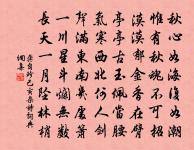 秋心如海復如潮
惟有秋魂不可招
漠漠鬱金香在臂
亭亭古玉佩當腰
氣寒西北何人劍
聲滿東南幾處簫
一川星斗爛無數
長天一月墜林梢